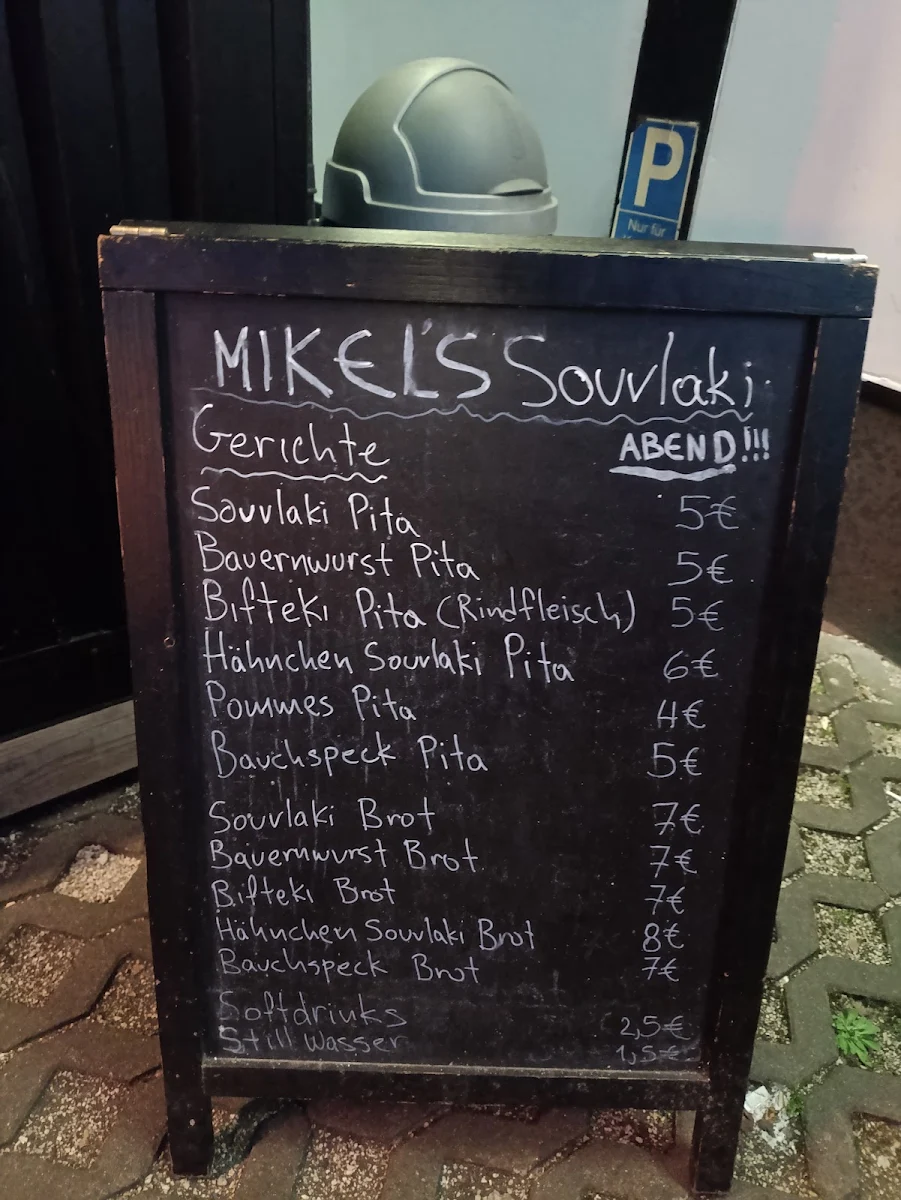 P
Nur für
MIKEL'S Souvlaki
Gerichte ABEND!!!
Souvlaki Pita 5€
Bauernwurst Pita 5€
Bifteki Pita (Rindfleisch) 5€
Hähnchen Souvlaki Pita 6€
Pommes Pita 4€
Bauchspeck Pita 5€
Souvlaki Brot 7€
Bauernwurst Brot 7€
Bifteki Brot 7€
Hähnchen Souvlaki Brot 8€
Bauchspeck Brot 7€
Softdrinks 2,5€
Still Wasser 1,5€